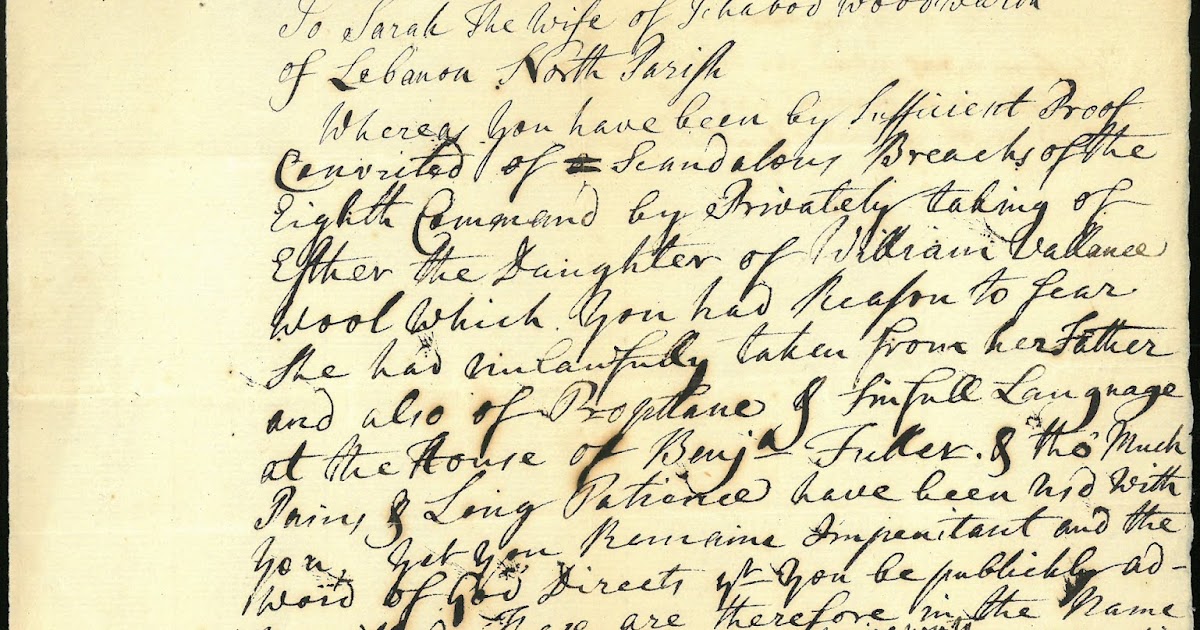 To Sarah the Wife of Ichabod Woodward
of Lebanon North Parish
Whereas You have been by Sufficient Proof
Convicted of Scandalous Breachs of the
Eighth Command by Privately taking of
Esther the Daughter of William Vallance
Wool Which You had Reason to fear
She had unlawfully taken from her Father
and also of Prophane & Sinfull Language
at the House of Benja Fuller. & tho' Much
Pains & Long Patience have been usd With
You, Yet You Remaine Impenitant and the
Word of God Directs yt You be publickly ad-
These are therefore in the Name